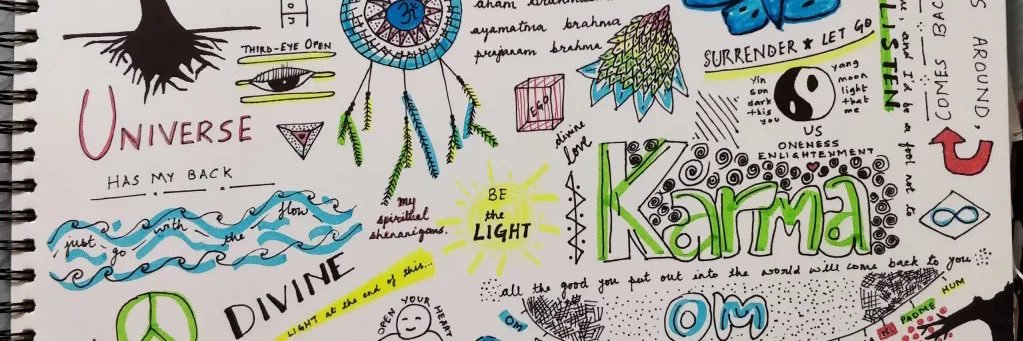 aham brahmasmi
ayamatma brahma
prajnanam brahma
THIRD-EYE OPEN
UNIVERSE
HAS MY BACK
just go with the flow
my
spiritual
shenanigans.
EGO
divine
love
BE
the
LIGHT
SURRENDER & LET GO
yin
sun
dark
this
you
yang
moon
light
that
me
US
ONENESS
ENLIGHTENMENT
Karma
all the good you put out into the world will come back to you
LISTEN
and I'd be a fool not to
AROUND,
COMES BAC
DIVINE
LIGHT at the end of this...
OPEN YOUR HEART
OM
OM
NI PADME HUM